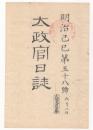 明治己巳第五十八號
太政官日誌